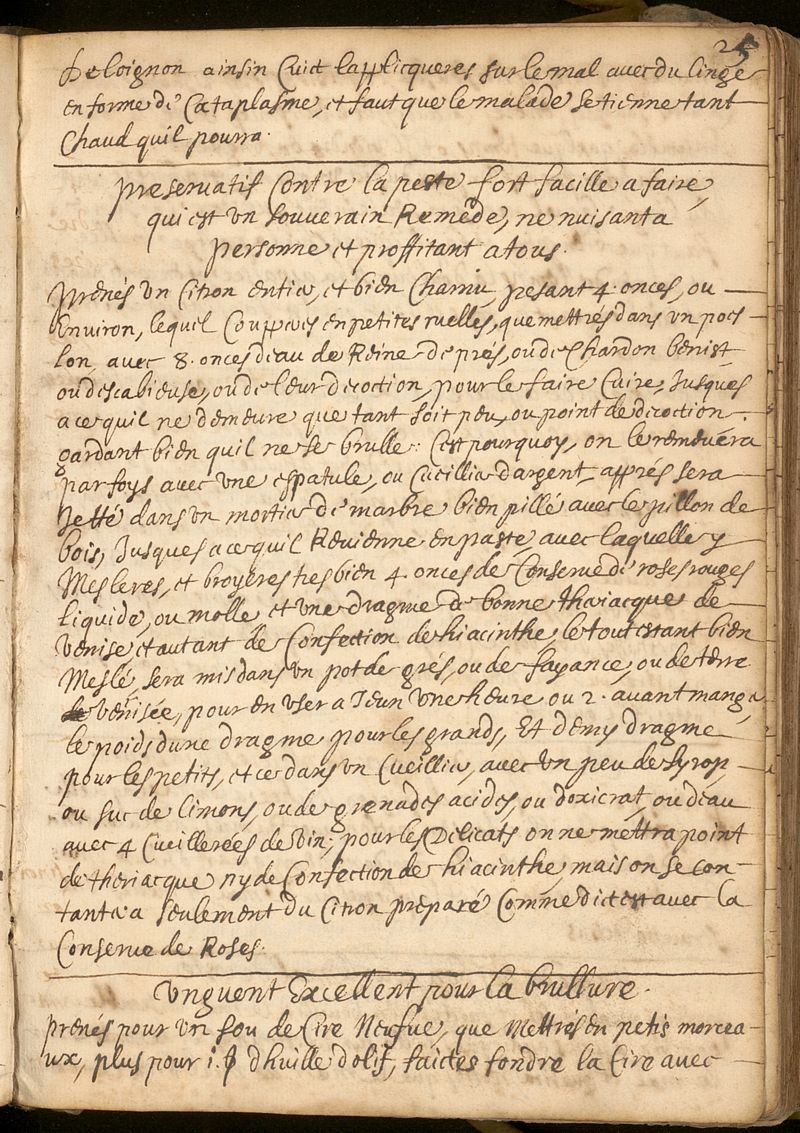 25
De loignon ainsin Cuict lapplicqueres sur le mal avec du linge
en forme de Cataplasme, et faut que le malade se tienne tant
Chaud quil pourra.
preservatif Contre la peste fort facille a faire,
qui est un souverain Remede, ne nuisant a
personne et proffitant a tous.
Prenés un Citron entier, et bien Charnu, pesant 4. onces, ou
Environ, lequel Coupperes en petites ruelles, que mettrés dans un poes
lon, avec 8. onces deau de Reine de prés, ou de Chardon benist
ou de scabieuse, ou de leur decoction, pour le faire Cuire, Jusques
a ce quil ne demeure que tant soit peu, ou point de decoction.
gardant bien quil ne se brulle: Cest pourquoy, on le remeuera
par foys avec une espatule, ou Cueillier dargent, apprés sera
Jetté dans un mortier de marbre bien pillé avec le pillon de
bois, Jusques a ce quil Revienne en paste avec laquelle y
Mesleres, et broyeres tres bien 4. onces de Conserve de roses rouges
liquide, ou molle et une dragme de bonne theriacque de
venise et autant de Confection de hiacinthe, le tout estant bien
Meslé, sera mis dans un pot de grés, ou de fayance, ou de terre
vernisée, pour en user a Jeun une heure ou 2. avant manger
le poids dune dragme pour les grands, Et demy dragme
pour les petits, et ce dans un Cueillier, avec un peu de syrop
ou suc de limons, ou de grenades acides, ou doxicrat, ou deau
avec 4 Cueillerees de vin, pour les Delicats on ne mettra point
de theriacque ny de Confection de hiacinthe, mais on se con-
tantera seulement du Citron preparé Comme dict est avec la
Conserve de Roses.
Unguent Excellent pour la brullure.
Prenés pour un sou de Cire Neufve, que Mettrés en petis morcea-
ux, plus pour 1. dhuille dolif, faictes fondre la Cire avec